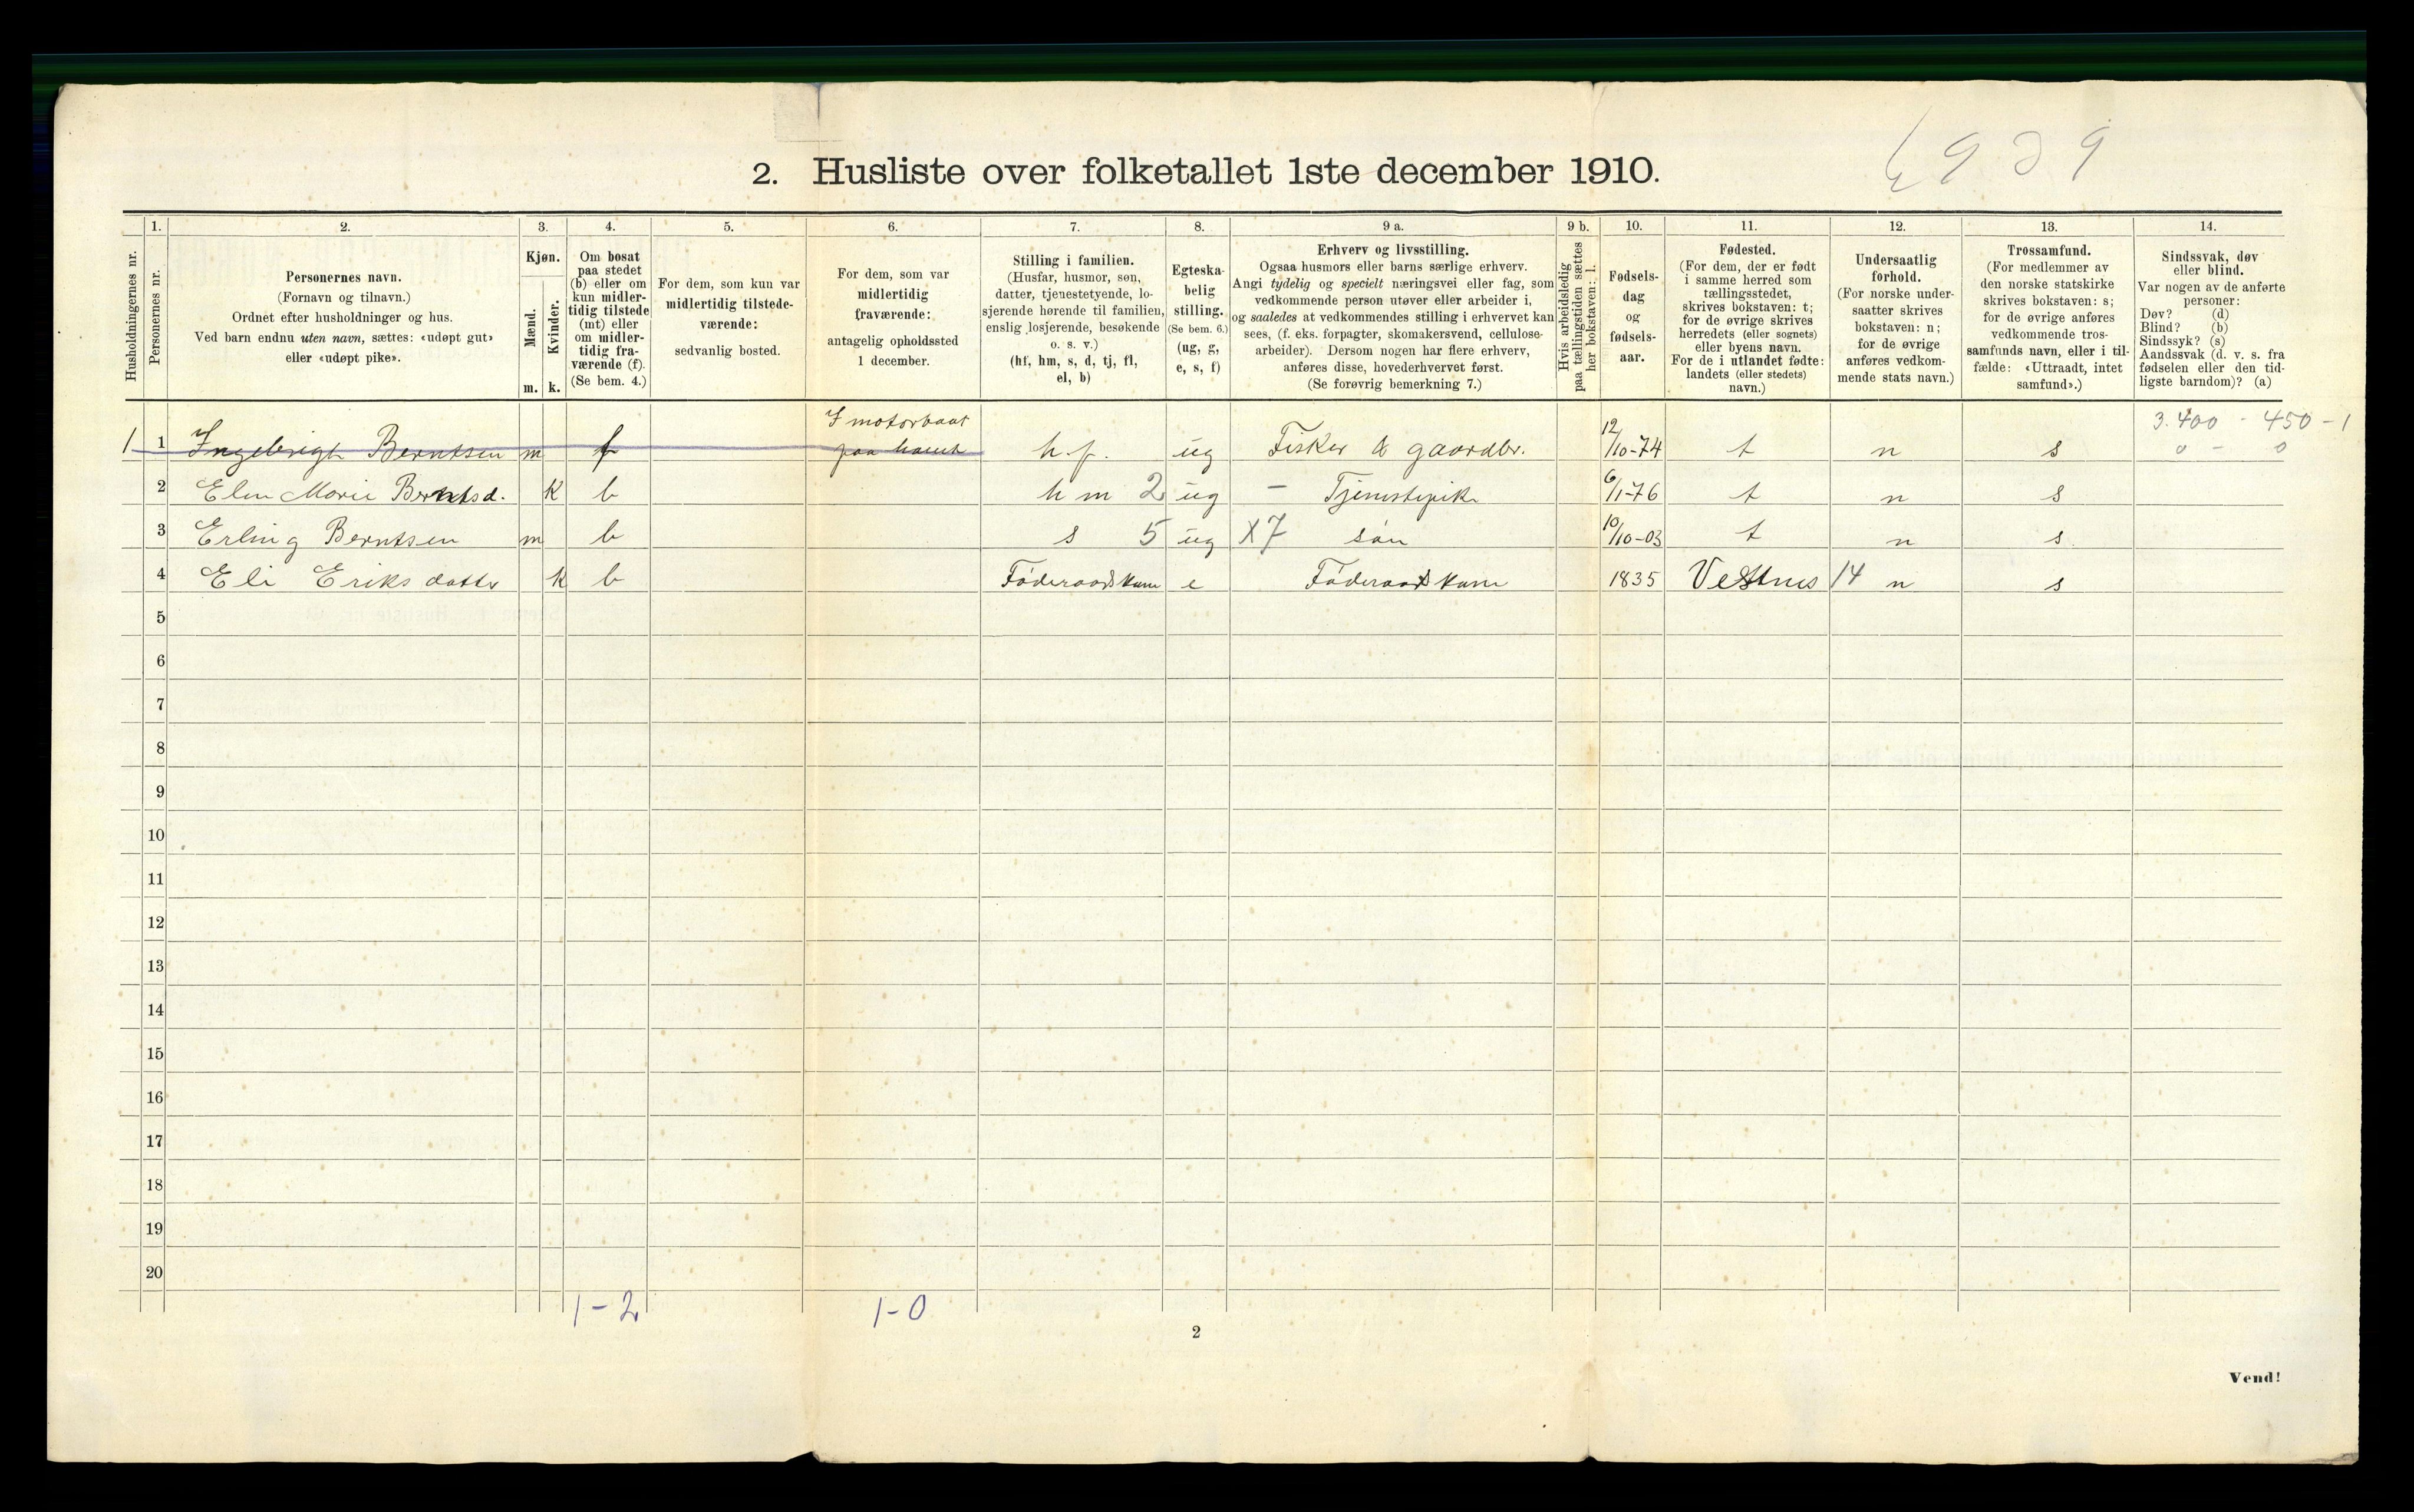 2. Husliste over folketallet 1ste december 1910.
Husholdningernes nr.
1.
Personernes nr.
2.
Personernes navn.
(Fornavn og tilnavn.)
Ordnet efter husholdninger og hus.
Ved barn endnu uten navn, sættes: «udøpt gut»
eller «udøpt pike».
3.
Kjøn.
Mænd.
Kvinder.
m.
k.
4.
Om bosat
paa stedet
(b) eller om
kun midler-
tidig tilstede
(mt) eller
om midler-
tidig fra-
værende (f).
(Se bem. 4.)
5.
For dem, som kun var
midlertidig tilstede-
værende:
sedvanlig bosted.
6.
For dem, som var
midlertidig
fraværende:
antagelig opholdssted
1 december.
7.
Stilling i familien.
(Husfar, husmor, søn,
datter, tjenestetyende, lo-
sjerende hørende til familien,
enslig losjerende, besøkende
o. s. v.)
(hf, hm, s, d, tj, fl,
el, b)
8.
Egteska-
belig
stilling.
(Se bem. 6.)
(ug, g,
e, s, f)
9 a.
Erhverv og livsstilling.
Ogsaa husmors eller barns særlige erhverv.
Angi tydelig og specielt næringsvei eller fag, som
vedkommende person utøver eller arbeider i,
og saaledes at vedkommendes stilling i erhvervet kan
sees, (f. eks. forpagter, skomakersvend, cellulose-
arbeider). Dersom nogen har flere erhverv,
anføres disse, hovederhvervet først.
(Se forøvrig bemerkning 7.)
9 b.
Hvis arbeidsledig
paa tællingstiden sættes
her bokstaven: l.
10.
Fødsels-
dag
og
fødsels-
aar.
11.
Fødested.
(For dem, der er født
i samme herred som
tællingsstedet,
skrives bokstaven: t;
for de øvrige skrives
herredets (eller sognets)
eller byens navn.
For de i utlandet fødte:
landets (eller stedets)
navn.)
12.
Undersaatlig
forhold.
(For norske under-
saatter skrives
bokstaven: n;
for de øvrige
anføres vedkom-
mende stats navn.)
13.
Trossamfund.
(For medlemmer av
den norske statskirke
skrives bokstaven: s;
for de øvrige anføres
vedkommende tros-
samfunds navn, eller i til-
fælde: «Uttraadt, intet
samfund».)
14.
Sindssvak, døv
eller blind.
Var nogen av de anførte
personer:
Døv? (d)
Blind? (b)
Sindssyk? (s)
Aandssvak (d. v. s. fra
fødselen eller den tid-
ligste barndom)? (a)
I motorbaat 3.400 - 450 - 1
1 1 Ingebrigt Berntsen m f paa havet h.f. ug Fisker & gaardbr. 12/10-74 t n s 0 - 0
2 Elen Marie Berntsd. k b h m 2 ug - Tjenestepike 6/1-76 t n s
3 Erling Berntsen m b s 5 ug X7 søn 10/10-03 t n s
4 Eli Eriksdatter k b Føderaadskone e Føderaadskone 1835 Vestnes 14 n s
5
6
7
8
9
10
11
12
13
14
15
16
17
18
19
20
1-2 1-0
2
Vend!